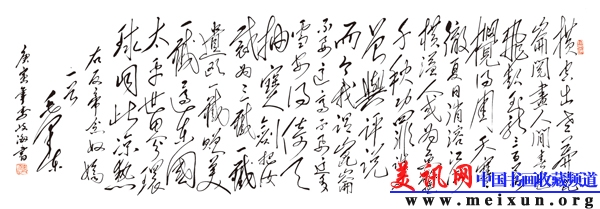 横空出世莽崑
崙阅尽人间春色
飞起玉龙三百万
搅得周天寒
彻夏日消溶江河
横溢人或为鱼鳖
千秋功罪谁人
曾與评说
而今我谓崑崙
不要这高不要这多
雪安得倚天
抽宝剑把汝
裁为三截一截
遗欧一截赠美
一截还东国
太平世界环
球同此凉热
右反帝念奴娇
一首 毛泽东
庚寅年 书
美讯网 中国书画收藏频道
www.meixun.org